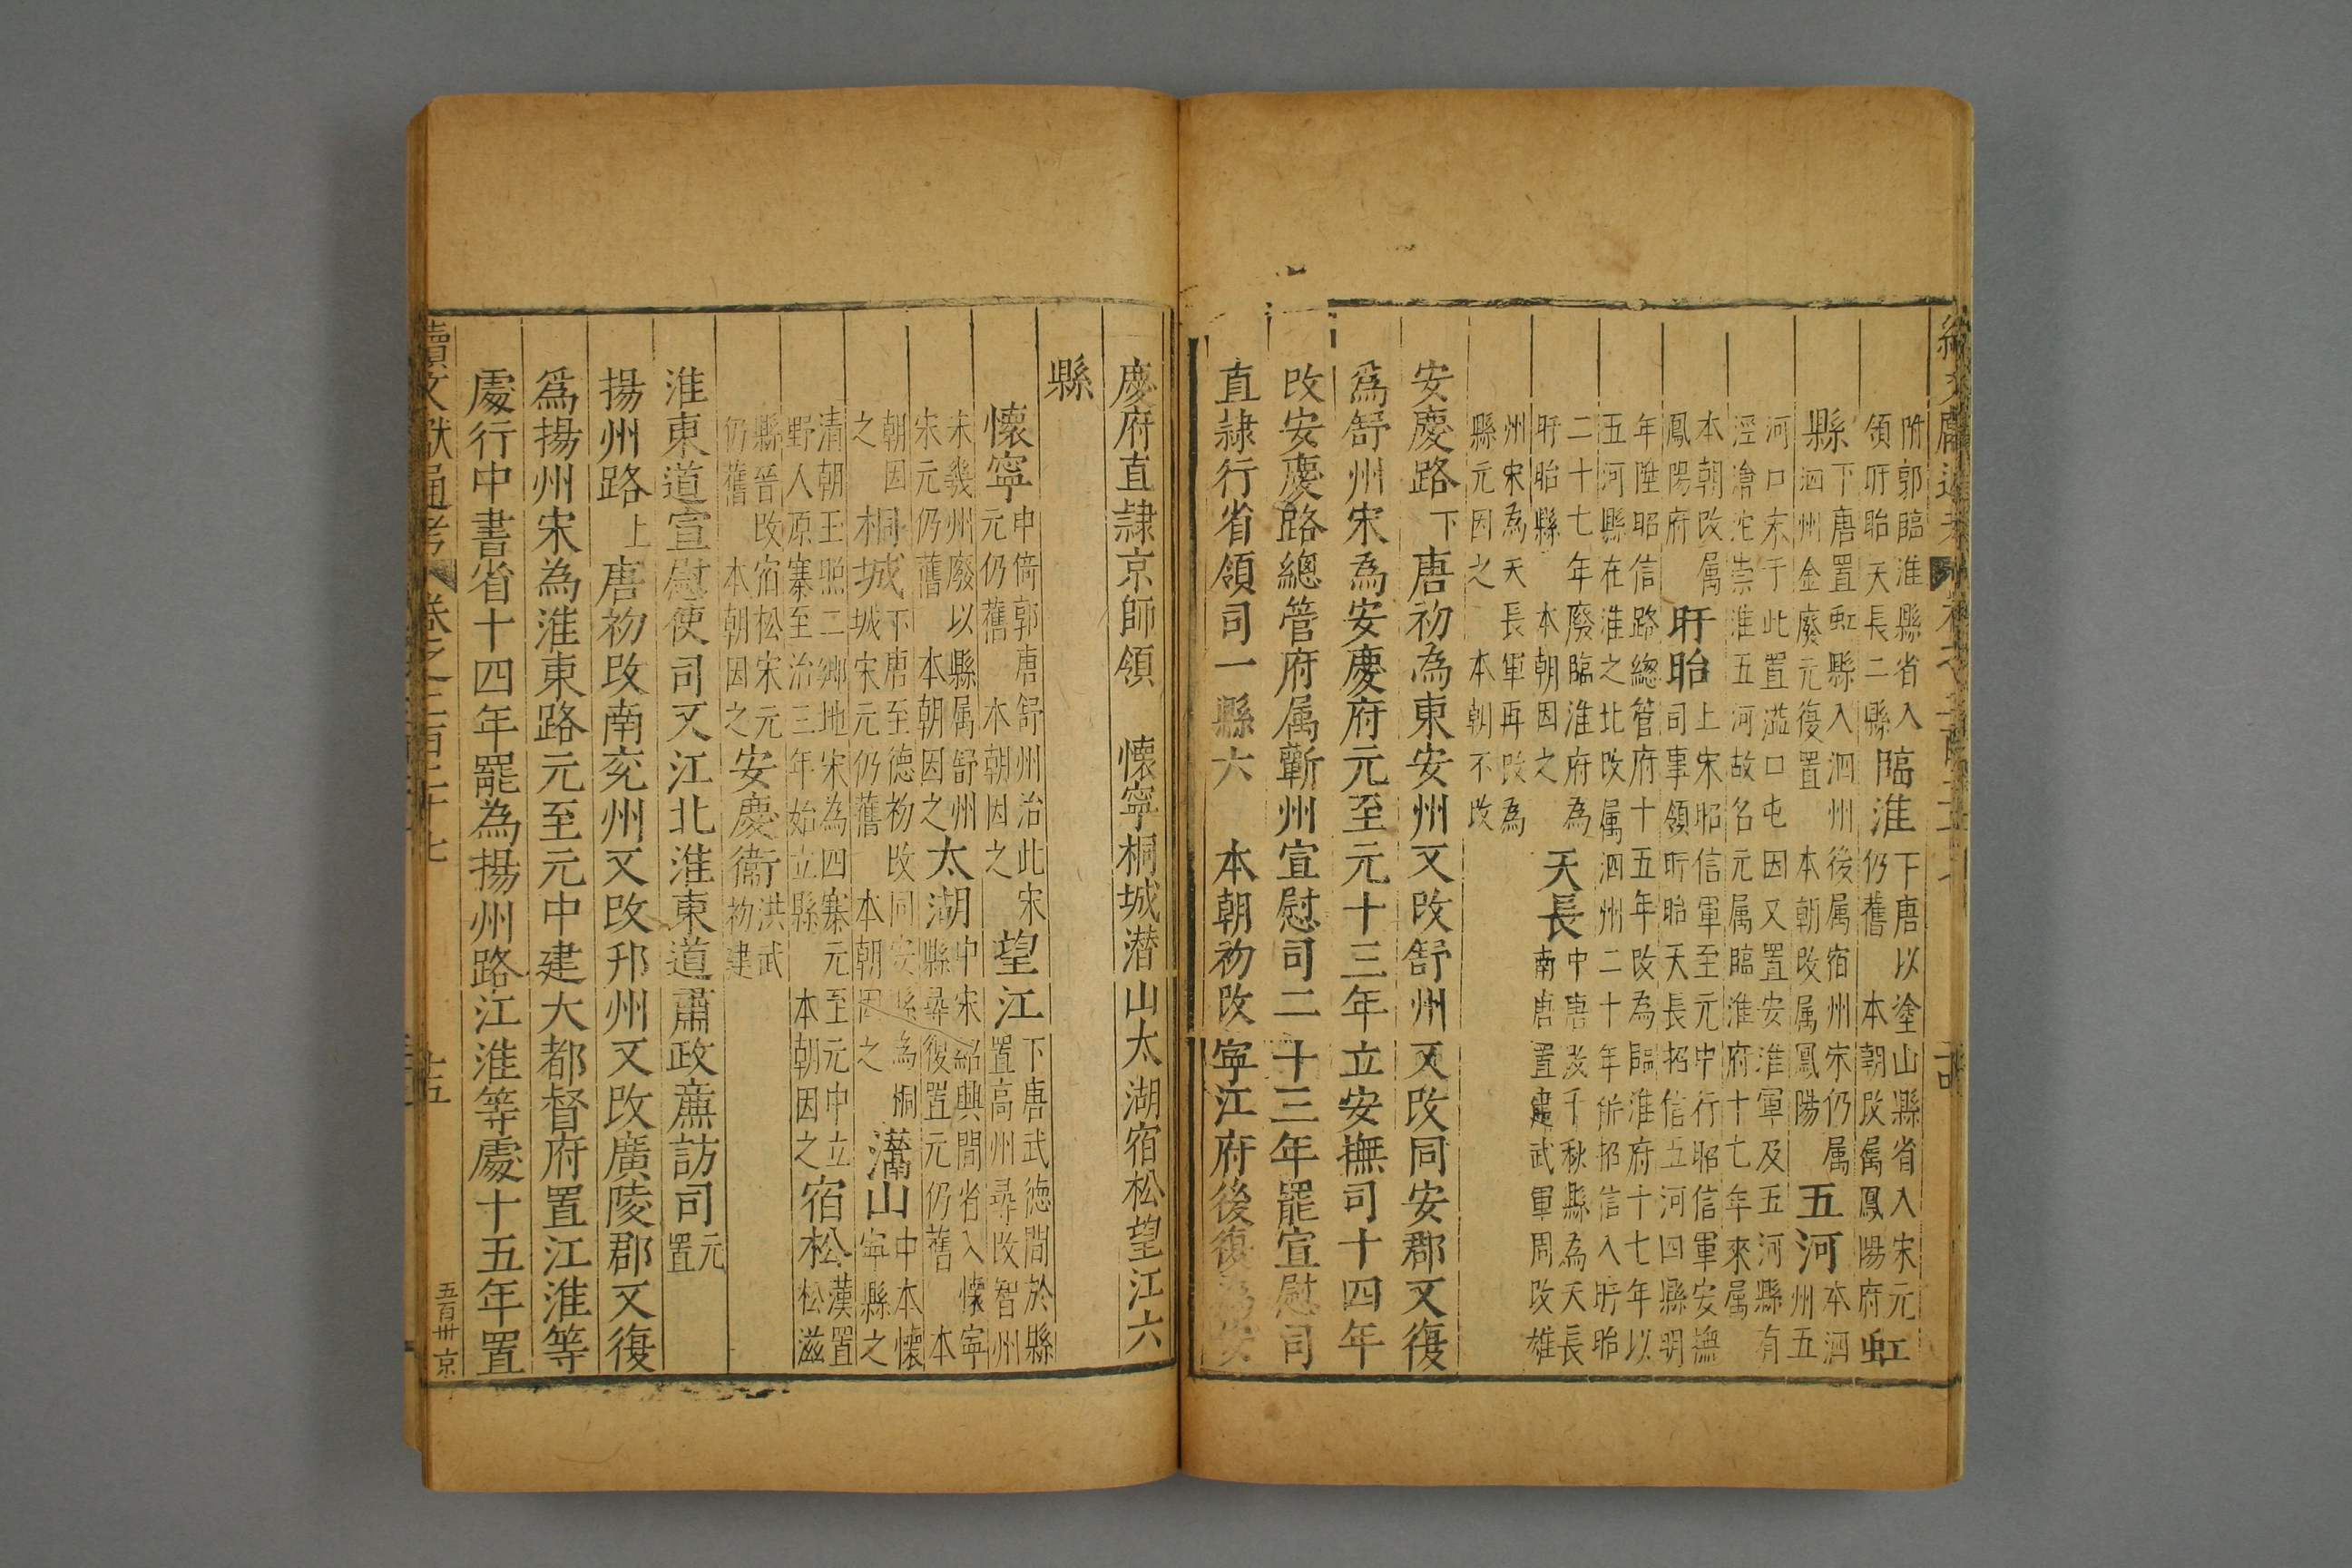 續文獻通考
附郭臨淮縣省入
領盱眙天長二縣
臨淮
下唐以塗山縣省入宋元
仍舊　本朝改属鳳陽府
虹
縣
下唐置虹縣入泗州後属宿州宋仍属
泗州金廢元復置　本朝改属鳳陽
五河
本泗
州五
河口宋于此置溢口屯因又置安淮軍及五河縣有
涇澮沱崇淮五河故名元属臨淮府十七年來属
本朝改属
鳳陽府
盱眙
上宋昭信軍至元中行昭信軍安撫
司事領盱眙天長招信五河四縣明
年陞昭信路總管府十五年改為臨淮府十七年以
五河縣在淮之北改属泗州二十年併招信入盱眙
二十七年廢臨淮府為
盱眙縣　本朝因之
天長
中唐千秋縣為天長
南唐置建武軍周改雄
州宋為天長軍再改為
縣元因之　本朝不改
安慶路下唐初為東安州又改舒州又改同安郡又復
為舒州宋為安慶府元至元十三年立安撫司十四年
改安慶路總管府属蘄州宣慰司二十三年罷宣慰司
直隸行省領司一縣六　本朝初改寧江府後復為安
慶府直隸京師領　懷寧桐城潛山太湖宿松望江六
縣
懷寧
中倚郭唐舒州治此宋
元仍舊　本朝因之
望江
下唐武德間於縣
置高州尋改智州
未幾州廢以縣属舒州
宋元仍舊　本朝因之
太湖
中宋紹興間省入懷寧
縣尋復置元仍舊　本
朝因
之
桐城
下唐至德初改同安縣為桐
城宋元仍舊　本朝因之
灊山
中本懷
寧縣之
清朝王照二鄉地宋為四寨元至元中立
野人原寨至治三年始立縣　本朝因之
宿松
漢置
松滋
縣晉改宿松宋元
仍舊　本朝因之
安慶衞
洪武
初建
淮東道宣慰使司又江北淮東道肅政廉訪司
元
置
揚州路上唐初改南兗州又改邗州又改廣陵郡又復
為揚州宋為淮東路元至元中建大都督府置江淮等
處行中書省十四年罷為揚州路江淮等處十五年置
續文獻通考　卷之二百二十七　十五　五百卅　京